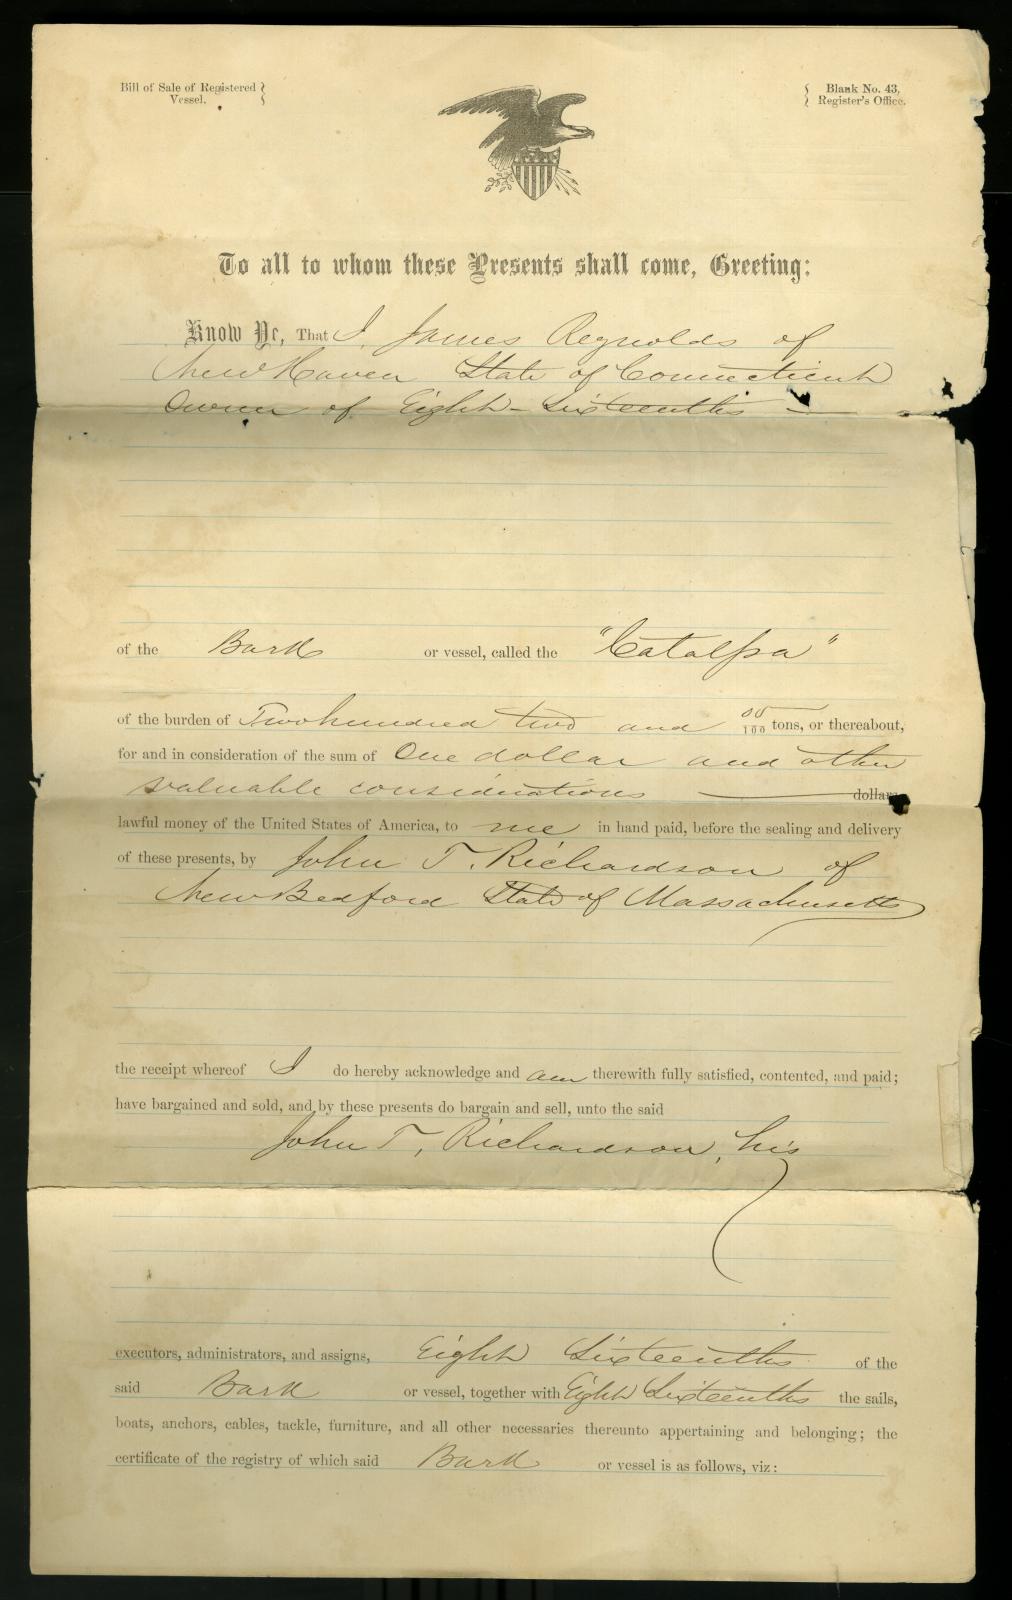 Bill of Sale of Registered
Vessel.
Blank No. 43,
Register's Office.
To all to whom these Presents shall come, Greeting:
Know Ye, That I, James Reynolds of
New Haven State of Connecticut
Owner of Eight-Sixteenths
of the Bark or vessel, called the "Catalpa"
of the burden of Two hundred two and 00/100 tons, or thereabout,
for and in consideration of the sum of One dollar and other
valuable considerations dollars
lawful money of the United States of America, to me in hand paid, before the sealing and delivery
of these presents, by John T. Richardson of
New Bedford State of Massachusetts
the receipt whereof I do hereby acknowledge and am therewith fully satisfied, contented, and paid;
have bargained and sold, and by these presents do bargain and sell, unto the said
John T, Richardson, his
executors, administrators, and assigns, Eight Sixteenths of the
said Bark or vessel, together with Eight Sixteenths the sails,
boats, anchors, cables, tackle, furniture, and all other necessaries thereunto appertaining and belonging; the
certificate of the registry of which said Bark or vessel is as follows, viz: